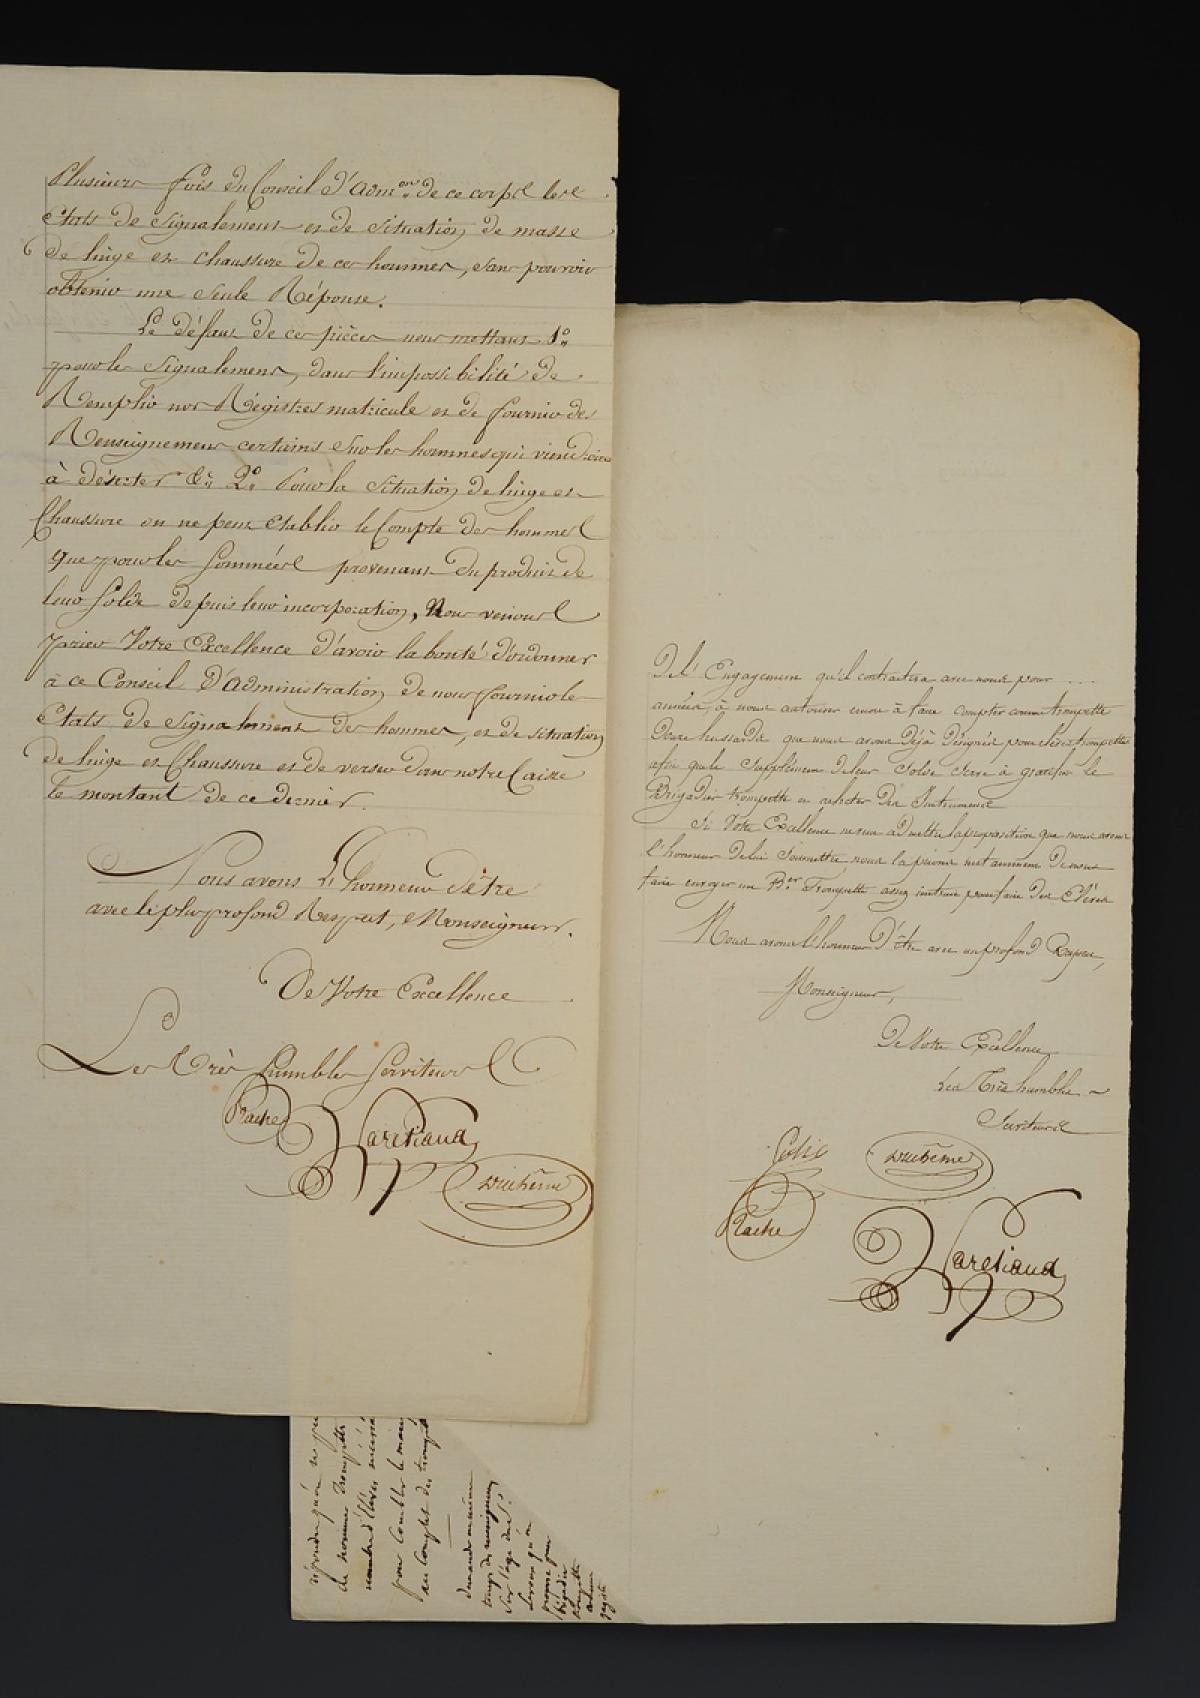 Plusieurs fois du Conseil d'adm.on de ce corps les
Etats de signalement et de situation de masse
de linge et chaussure de ces hommes, sans pouvoir
obtenir une seule Réponse.
Le défaut de ces pièces nous mettant 1o
pour le signalement, dans l'impossibilité de
Remplir nos Régistres matricule et de fournir des
Renseignemens certains sur les hommes qui viendroient
à déserter &. 2o Pour la situation de linge et
Chaussure on ne peut etablir le Compte des hommes
que pour les Sommées provenant du produit de
leur Solde depuis leur incorporation, Nous venons
prier Votre Excellence d'avoir la bonté d'ordonner
à ce Conseil d'administration de nous fournir le
Etats de signalement des hommes, et de situation
de linge et Chaussure et de verser dans notre Caisse
le montant de ce dernier.
Nous avons L'honneur d'être
avec le plus profond Respect, Monseigneur.
De Votre Excellence
Les Très humbles Serviteurs
Rache
Maretiaud
Duchême
De l'Engagement qu'il contractera avec nous pour ....
années, à nous autoriser encore à faire compter comme trompette
Douze hussards que nous avons Déjà Désignés pour élèves trompettes
afin que le Supplément de leur Solde Serve à gratifier le
Brigadier trompette et acheter Des Instrumens
Si Votre Excellence veut admettre la proposition que nous avons
l'honneur De lui Soumettre, nous la prions instamment De nous
faire envoyer un B.er Trompette assez instruit pour faire Des Elèves
Nous avons l'honneur D'être avec un profond Respect,
Monseigneur,
De Votre Excellence
Les Très humbles
Serviteurs
Duchême
Rache
Maretiaud
répondre qu'on ne peut
de nommer trompette
nombre d'élèves
pour combler le
au complet des trompettes
demande en même
temps des
Sur l'age